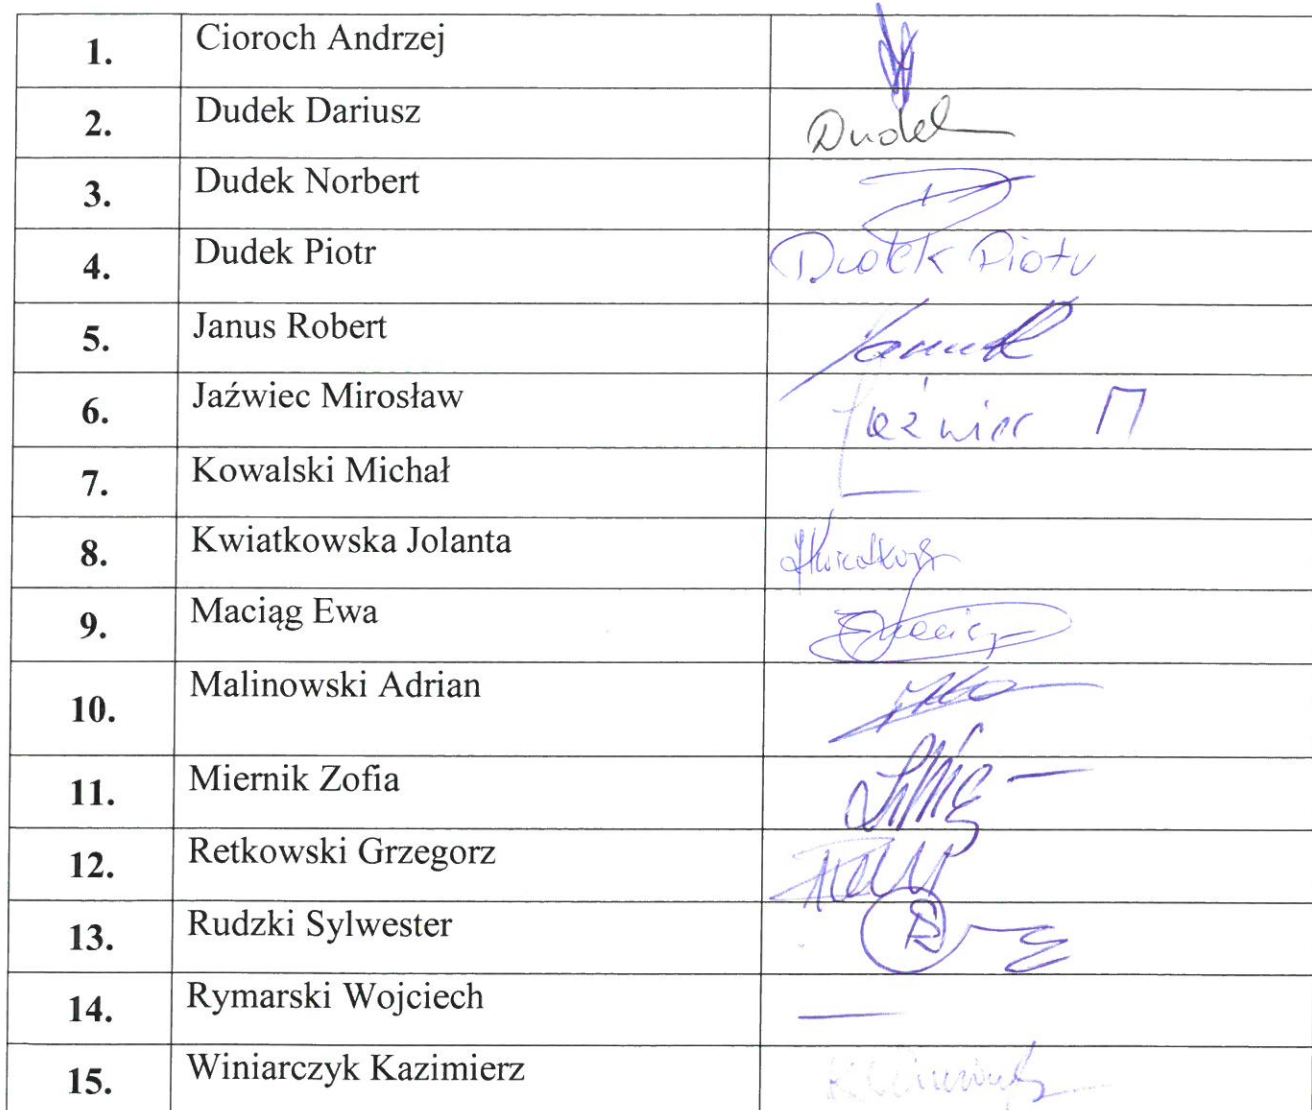 1. Cioroch Andrzej
2. Dudek Dariusz Dudek
3. Dudek Norbert
4. Dudek Piotr Dudek Piotr
5. Janus Robert
6. Jaźwiec Mirosław Jaźwiec M
7. Kowalski Michał —
8. Kwiatkowska Jolanta
9. Maciąg Ewa
10. Malinowski Adrian
11. Miernik Zofia
12. Retkowski Grzegorz
13. Rudzki Sylwester
14. Rymarski Wojciech —
15. Winiarczyk Kazimierz